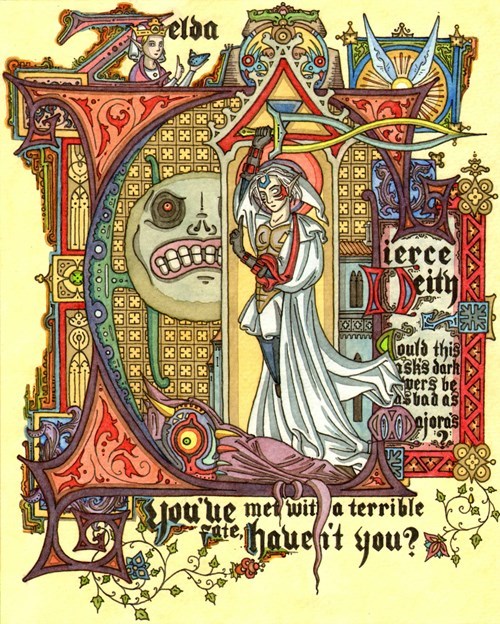 Zelda
Fierce
Deity
Could this
masks dark
powers be
as bad as
Majora's
?
You've met with a terrible
fate, haven't you?